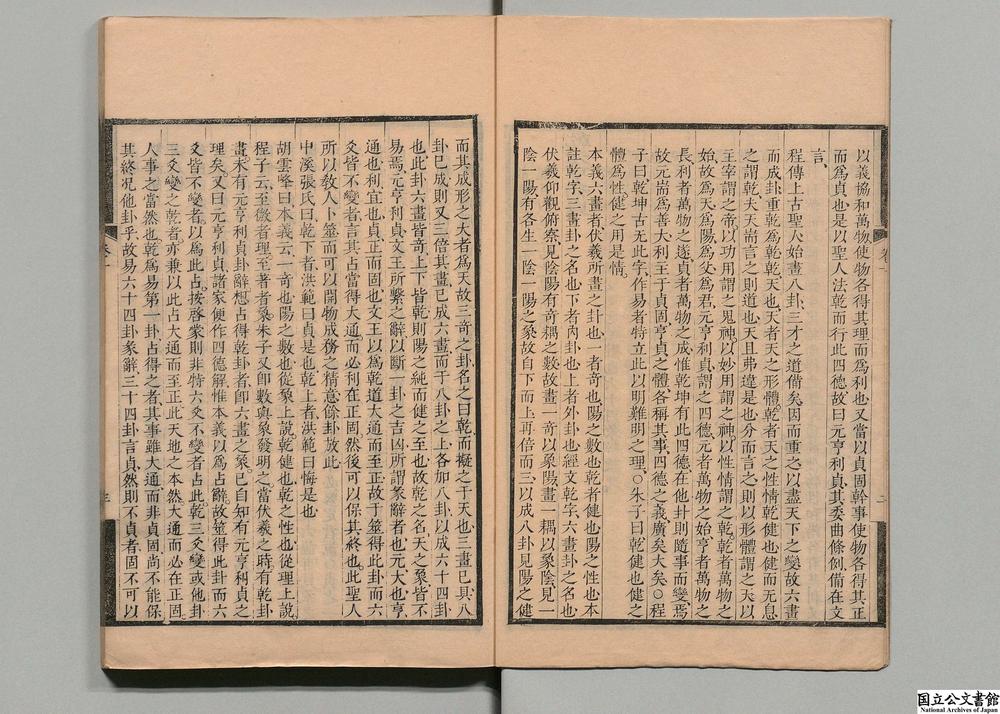 以義協和萬物使物各得其理而爲利也又當以貞固幹事使物各得其正
而爲貞也是以聖人法乾而行此四德故曰元亨利貞其委曲條例備在文
言
程傳上古聖人始畫八卦三才之道備矣因而重之以盡天下之變故六畫
而成卦重乾爲乾乾天也天者天之形體乾者天之性情乾健也健而无息
之謂乾夫天耑言之則道也天且弗違是也分而言之則以形體謂之天以
主宰謂之帝以功用謂之鬼神以妙用謂之神以性情謂之乾乾者萬物之
始故爲天爲陽爲父爲君元亨利貞謂之四德元者萬物之始亨者萬物之
長利者萬物之遂貞者萬物之成惟乾坤有此四德在他卦則隨事而變焉
故元耑爲善大利主于貞固亨貞之體各稱其事四德之義廣矣大矣○程
子曰乾坤古无此字作易者特立此以明難明之理○朱子曰乾健也健之
體爲性健之用是情
本義六畫者伏羲所畫之卦也一者奇也陽之數也乾者健也陽之性也本
註乾字三畫卦之名也下者內卦也上者外卦也經文乾字六畫卦之名也
伏羲仰觀俯察見陰陽有奇耦之數故畫一奇以象陽畫一耦以象陰見一
陰一陽有各生一陰一陽之象故自下而上再倍而三以成八卦見陽之健
而其成形之大者爲天故三奇之卦名之曰乾而擬之于天也三畫已具八
卦已成則又三倍其畫已成六畫而于八卦之上各加八卦以成六十四卦
也此卦六畫皆奇上下皆乾則陽之純而健之至也故乾之名天之象皆不
易焉元亨利貞文王所繫之辭以斷一卦之吉凶所謂彖辭者也元大也亨
通也利宜也貞正而固也文王以爲乾道大通而至正故于筮得此卦而六
爻皆不變者言其占當得大通而必利在正固然後可以保其終也此聖人
所以敎人卜筮而可以開物成務之精意餘卦放此
中溪張氏曰乾下者洪範曰貞是也乾上者洪範曰悔是也
胡雲峰曰本義云一奇也陽之數也從象上說乾健也乾之性也從理上說
程子云至微者理至著者象朱子又卽數與象發明之當伏羲之時有乾卦
畫未有元亨利貞卦辭想占得乾卦者卽六畫之象已自知有元亨利貞之
理矣又曰元亨利貞諸家便作四德解惟本義以爲占辭故筮得此卦而六
爻皆不變者以爲此占按啓蒙則非特六爻不變者占此乾三爻變或他卦
三爻變之乾者亦兼以此占大通而至正此天地之本然大通而必在正固
人事之當然也乾爲易第一卦占得之者其事雖大通而非貞固尚不能保
其終况他卦乎故易六十四卦彖辭三十四卦言貞然則不貞者固不可以
卷一
三
国立公文書館
National Archives of Japan